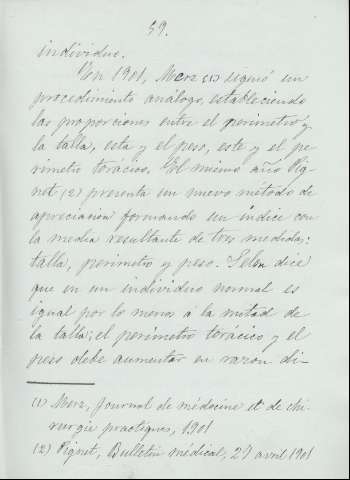 59.
individuo.
En 1901, Merz (1) siguió un
procedimiento análogo, estableciendo
las proporciones entre el perimetro y
la talla, esta y el peso, este y el pe-
rimetro torácico. El mismo año Pig-
net (2) presenta un nuevo método de
apreciación formando un índice con
la media resultante de tres medidas:
talla, perimetro y peso. Selon dice
que en un individuo normal es
igual por lo menos á la mitad de
la talla; el perimetro torácico y el
peso debe aumentar en razon di-
(1) Merz, Journal de médecine et de chi-
rurgie practiques, 1901
(2) Pignet, Bulletin médical, 27 avril 1901